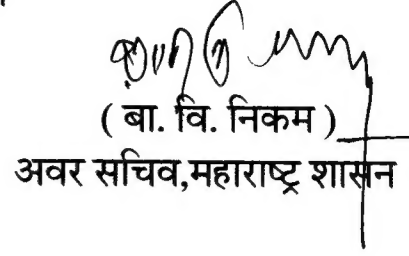 ( बा. वि. निकम )
अवर सचिव,महाराष्ट्र शासन